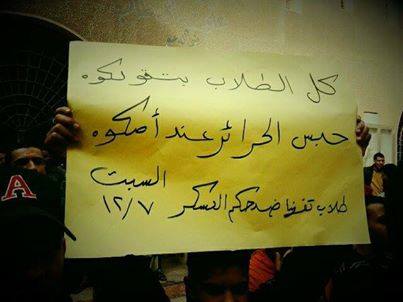 كل الطلاب بتقولكوه
حبس الحرائر عند أمكوه
طلاب تفهنا ضد حكم العسكر
السبت
١٢/٧
A